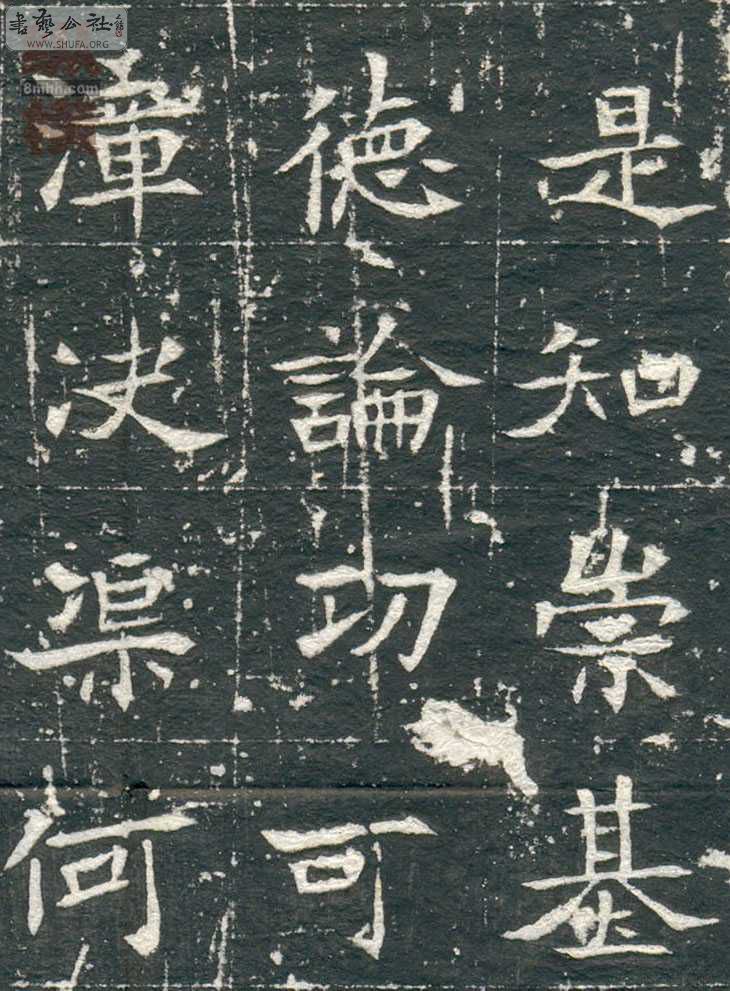 書藝公社
WWW.SHUFA.ORG
8mhh.com
是知崇基
德論功可
漳决渠何